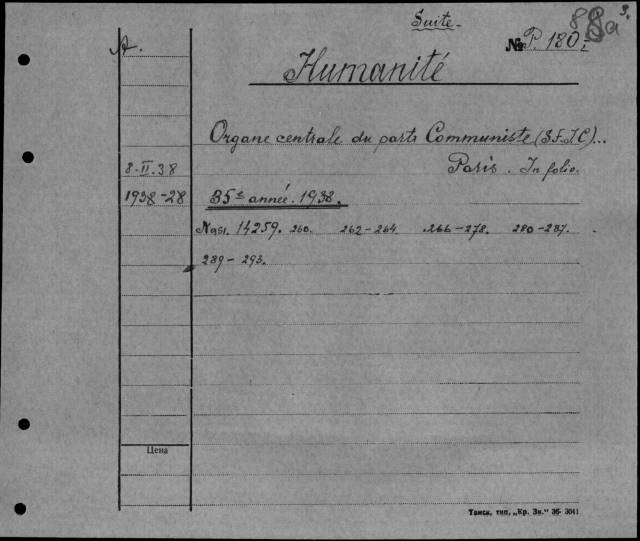 Suite.
№ P. 180
A.
Humanité
Organe centrale du parts Communiste (S.F.I.C)...
8.II.38
Paris. In folio.
1938-28 35e année. 1938.
Nos. 14259. 260. 262-264. 266-278. 280-287.
289-293.
Цена
Томск, тип. „Кр. Зн." 36- 3041